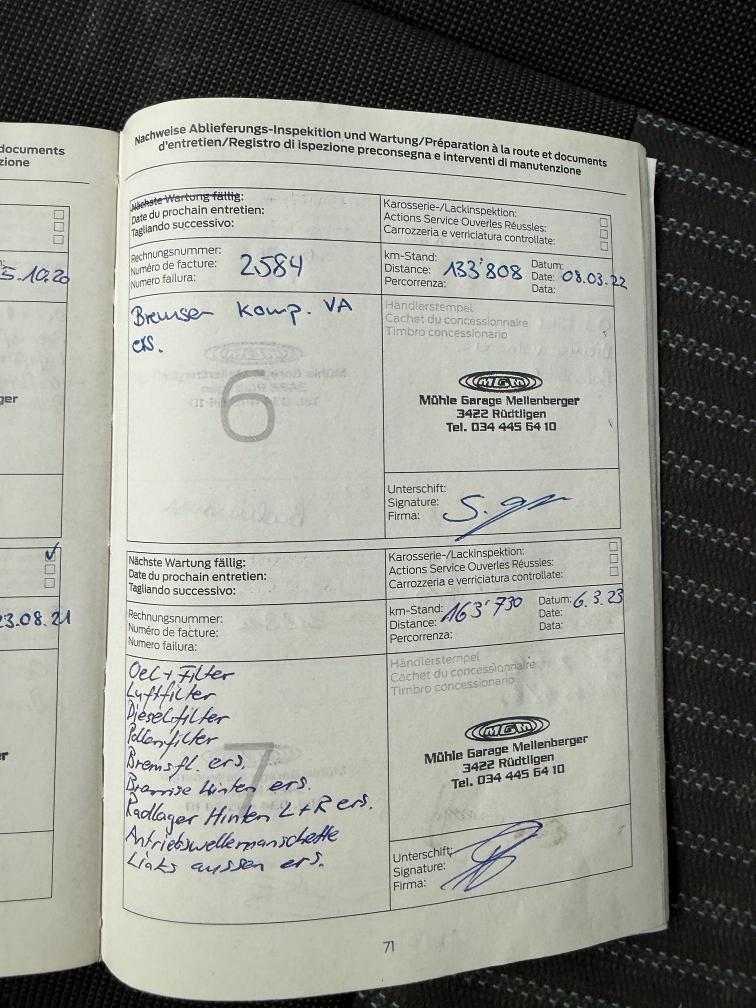 documents
zione
5.10.20
ger
23.08.21
r
Nachweise Ablieferungs-Inspekition und Wartung/Préparation à la route et documents
d'entretien/Registro di ispezione preconsegna e interventi di manutenzione
Nächste Wartung fällig:
Date du prochain entretien:
Tagliando successivo:
Karosserie-/Lackinspektion:
Actions Service Ouverles Réussles:
Carrozzeria e verriciatura controllate:
Rechnungsnummer:
Numéro de facture:
Numero failura:
2584
km-Stand:
Distance:
Percorrenza:
133'808
Datum:
Date:
Data:
08.03.22
Bremsen komp. VA
ers.
6
Händlerstempel
Cachet du concessionnaire
Timbro concessionario
MGM
Mühle Garage Mellenberger
3422 Rüdtligen
Tel. 034 445 64 10
Unterschift:
Signature:
Firma:
Nächste Wartung fällig:
Date du prochain entretien:
Tagliando successivo:
Karosserie-/Lackinspektion:
Actions Service Ouverles Réussles:
Carrozzeria e verriciatura controllate:
Rechnungsnummer:
Numéro de facture:
Numero failura:
km-Stand:
Distance:
Percorrenza:
163'730
Datum:
Date:
Data:
6.3.23
Oel + Filter
Luftfilter
Dieselfilter
Pollenfilter
Bremsfl. ers.
Hinten ers.
Radlager Hinten L+R ers.
Antriebswellenmanschette
Links aussen ers.
7
Händlerstempel
Cachet du concessionnaire
Timbro concessionario
MGM
Mühle Garage Mellenberger
3422 Rüdtligen
Tel. 034 445 64 10
Unterschift:
Signature:
Firma:
71